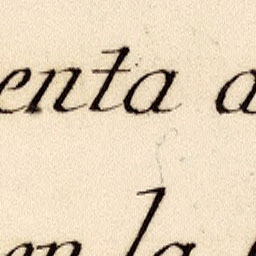 enta a
en la